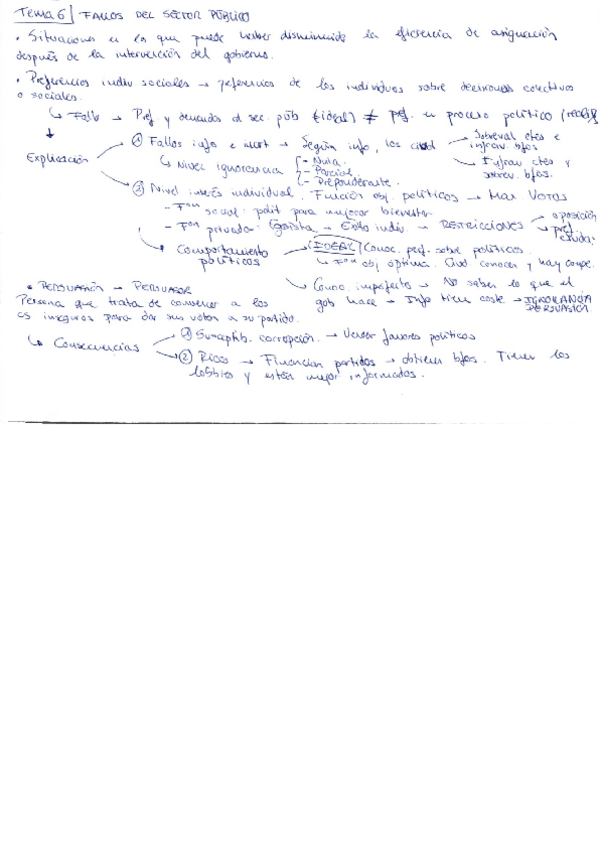 Tema 6 | FALLOS DEL SECTOR PÚBLICO
• Situaciones en las que puede haber disminuido la eficiencia de asignación
después de la intervención del gobierno.
• Preferencias indiv sociales → preferencias de los individuos sobre decisiones colectivas
o sociales.
↳ Fallo → Pref y demandas al sec. púb (ideal) ≠ Pref. en proceso político (real)
Explicación
① Fallos info e incert → Según info, los ciud → Sobreval ctes e infrav. bfos
→ Infrav ctes y sobrev. bfos.
↳ Nivel ignorancia { - Nula.
- Parcial.
- Preponderante.
② Nivel interés individual. Función obj. políticos → Max Votos
- Fᵒⁿ social: polit para mejorar bienestar
- Fᵒⁿ privada: Egoísta → Éxito indiv. → RESTRICCIONES → oposición
→ pref. ciudad.
↳ Comportamiento políticos
→ IDEAL / Conoc. perf. sobre políticos.
↳ Fᵒⁿ obj óptima. Ciud conocen y hay compe.
→ Conoc. imperfecto → No saber lo que el
gob hace → Info tiene coste → IGNORANCIA
PERSUASIÓN
• PERSUASIÓN → PERSUASOR
Persona que trata de convencer a los
cs inseguros para dar sus votos a su partido.
↳ Consecuencias
① Susceptib. corrupción. → Vender favores políticos
② Ricos → Financian partidos → obtienen bfos. Tienen los
lobbies y están mejor informados.